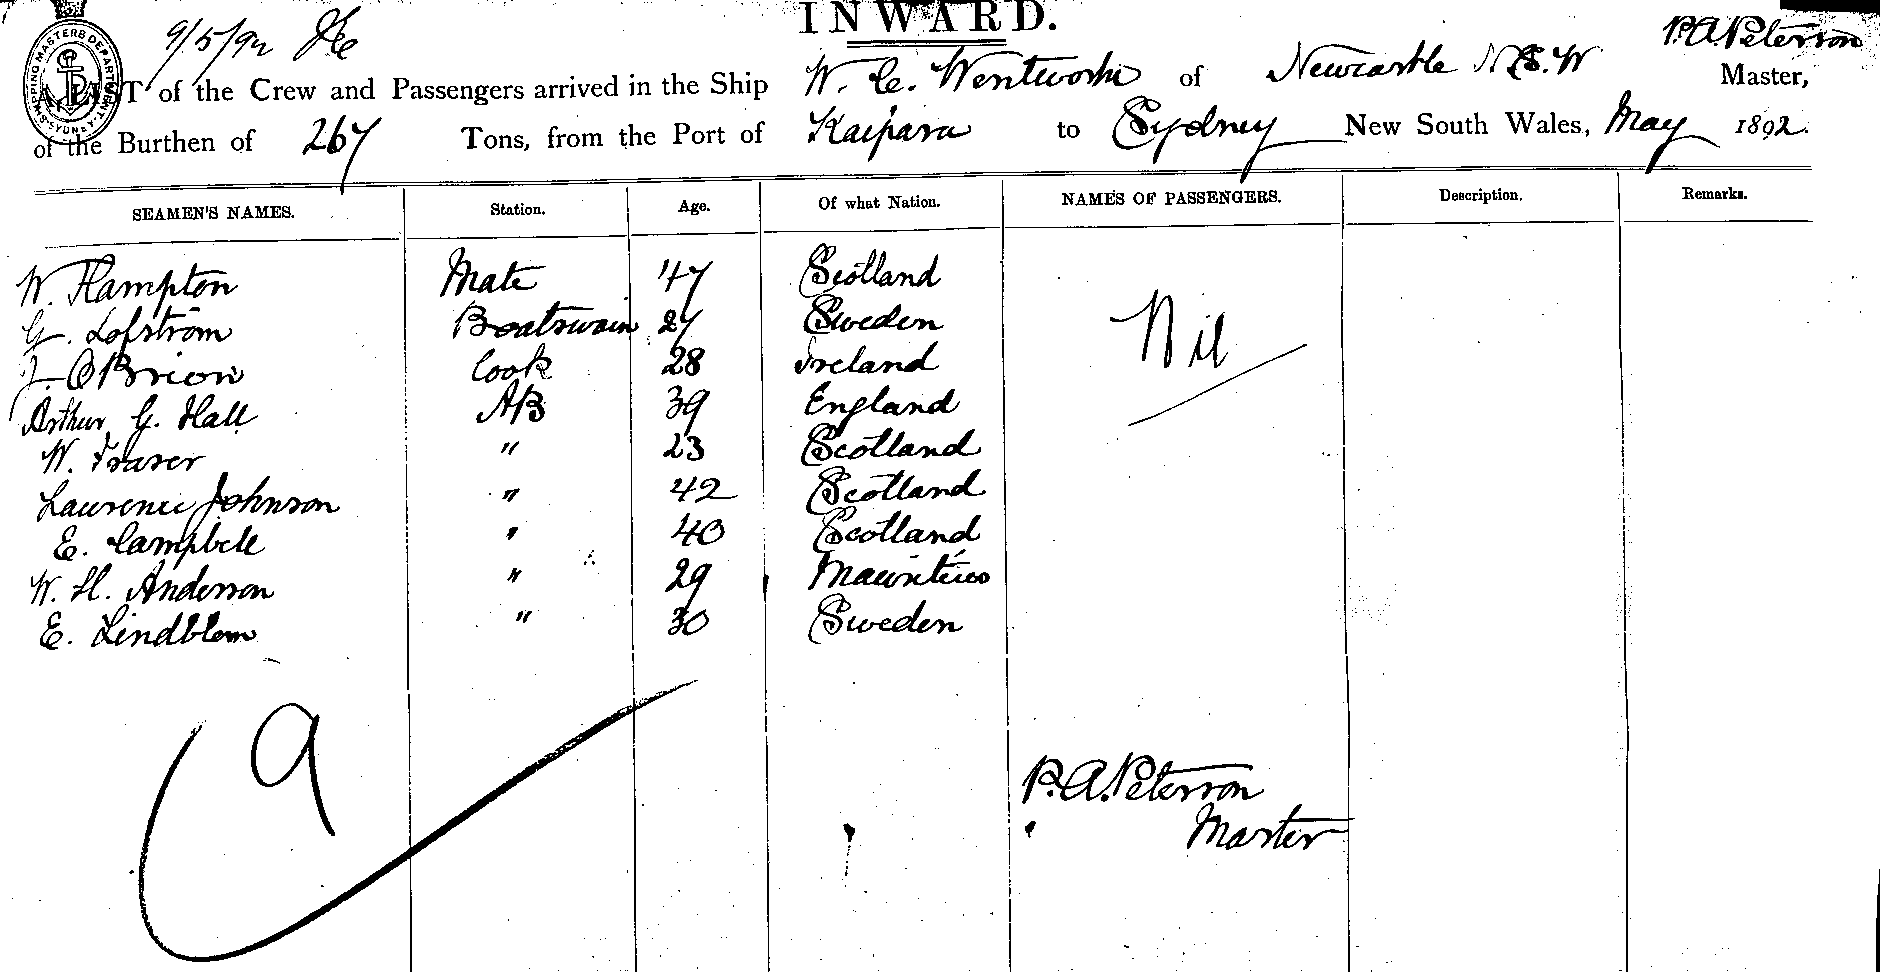 INWARD.
9/5/92
P. A. Peterson
A LIST of the Crew and Passengers arrived in the Ship W. C. Wentworth of Newcastle N.S.W Master,
of the Burthen of 267 Tons, from the Port of Kaipara to Sydney New South Wales, May 1892.
SHIPPING MASTERS DEPARTMENT SYDNEY
SEAMEN'S NAMES. Station. Age. Of what Nation. NAMES OF PASSENGERS. Description. Remarks.
W. Hampton Mate 47 Scotland
G. Lofstrom Boatswain 27 Sweden
Nil
J. O'Brion Cook 28 Ireland
Arthur G. Hall AB 39 England
W. Fraser " 23 Scotland
Laurence Johnson " 42 Scotland
E. Campbell " 40 Scotland
W. H. Anderson " 29 Mauritius
E. Lindblom " 30 Sweden
9
P. A. Peterson
Master